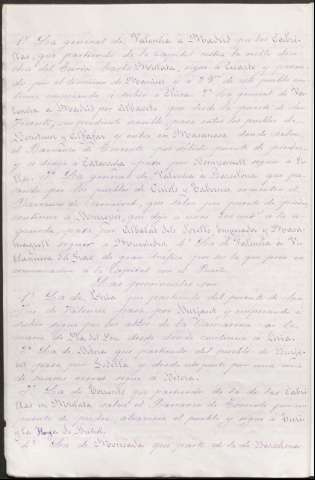 1ª La general de Valencia á Madrid por las Cabri-
llas, que partiendo de la Capital entra la orilla dere-
cha del Turia hasta Mislata, sigue á Cuarte, y pasan-
do por el término de Manises y á 2 K. de este pueblo en
línea recta y sube á Chiva. 2ª La general de Va-
lencia á Madrid por Albacete que desde la puerta de San
Vicente, en pendiente sensible pasa entre los pueblos de
Benetuser y Alfafar y entra en Masanasa donde salva
el Barranco de Torrente por sólido puente de piedra
y se dirige á Catarroja y pasa por Benifayó sigue á
3ª La general de Valencia á Barcelona que pa-
sando por los pueblos de Orriols y Tabernes, encuentra el
Barranco de Carraixet, que salva por puente de piedra
continua á Meliana, que deja á unos 200 met.s á la iz-
quierda, y pasa por Albalat dels Sorells, Emperador y Masa-
magrell seguir á Murviedro. 4ª La de Valencia á Vi-
llanueva del Grao de gran tráfico por ser la que pone en
comunicación á la Capital con el Puerto.
Las provinciales son
1ª La de Liria que partiendo del puente de San
José de Valencia pasa por Burjasot y empezando á
subir sigue por los altos de la
de Pla del Pou desde donde continua á Liria.
2ª La de Bétera que partiendo del pueblo de Burja-
sot pasa por Godella y desde este punto por una serie
de suaves sigue á Bétera.
3ª La de Torrente que partiendo de la de las Cabri-
llas en Mislata salva el Barranco de Torrente por un
puente de piedra, atraviesa el pueblo y sigue á Turís
y La Hoya de Buñol.
4ª La de Moncada que parte de la de Barcelona